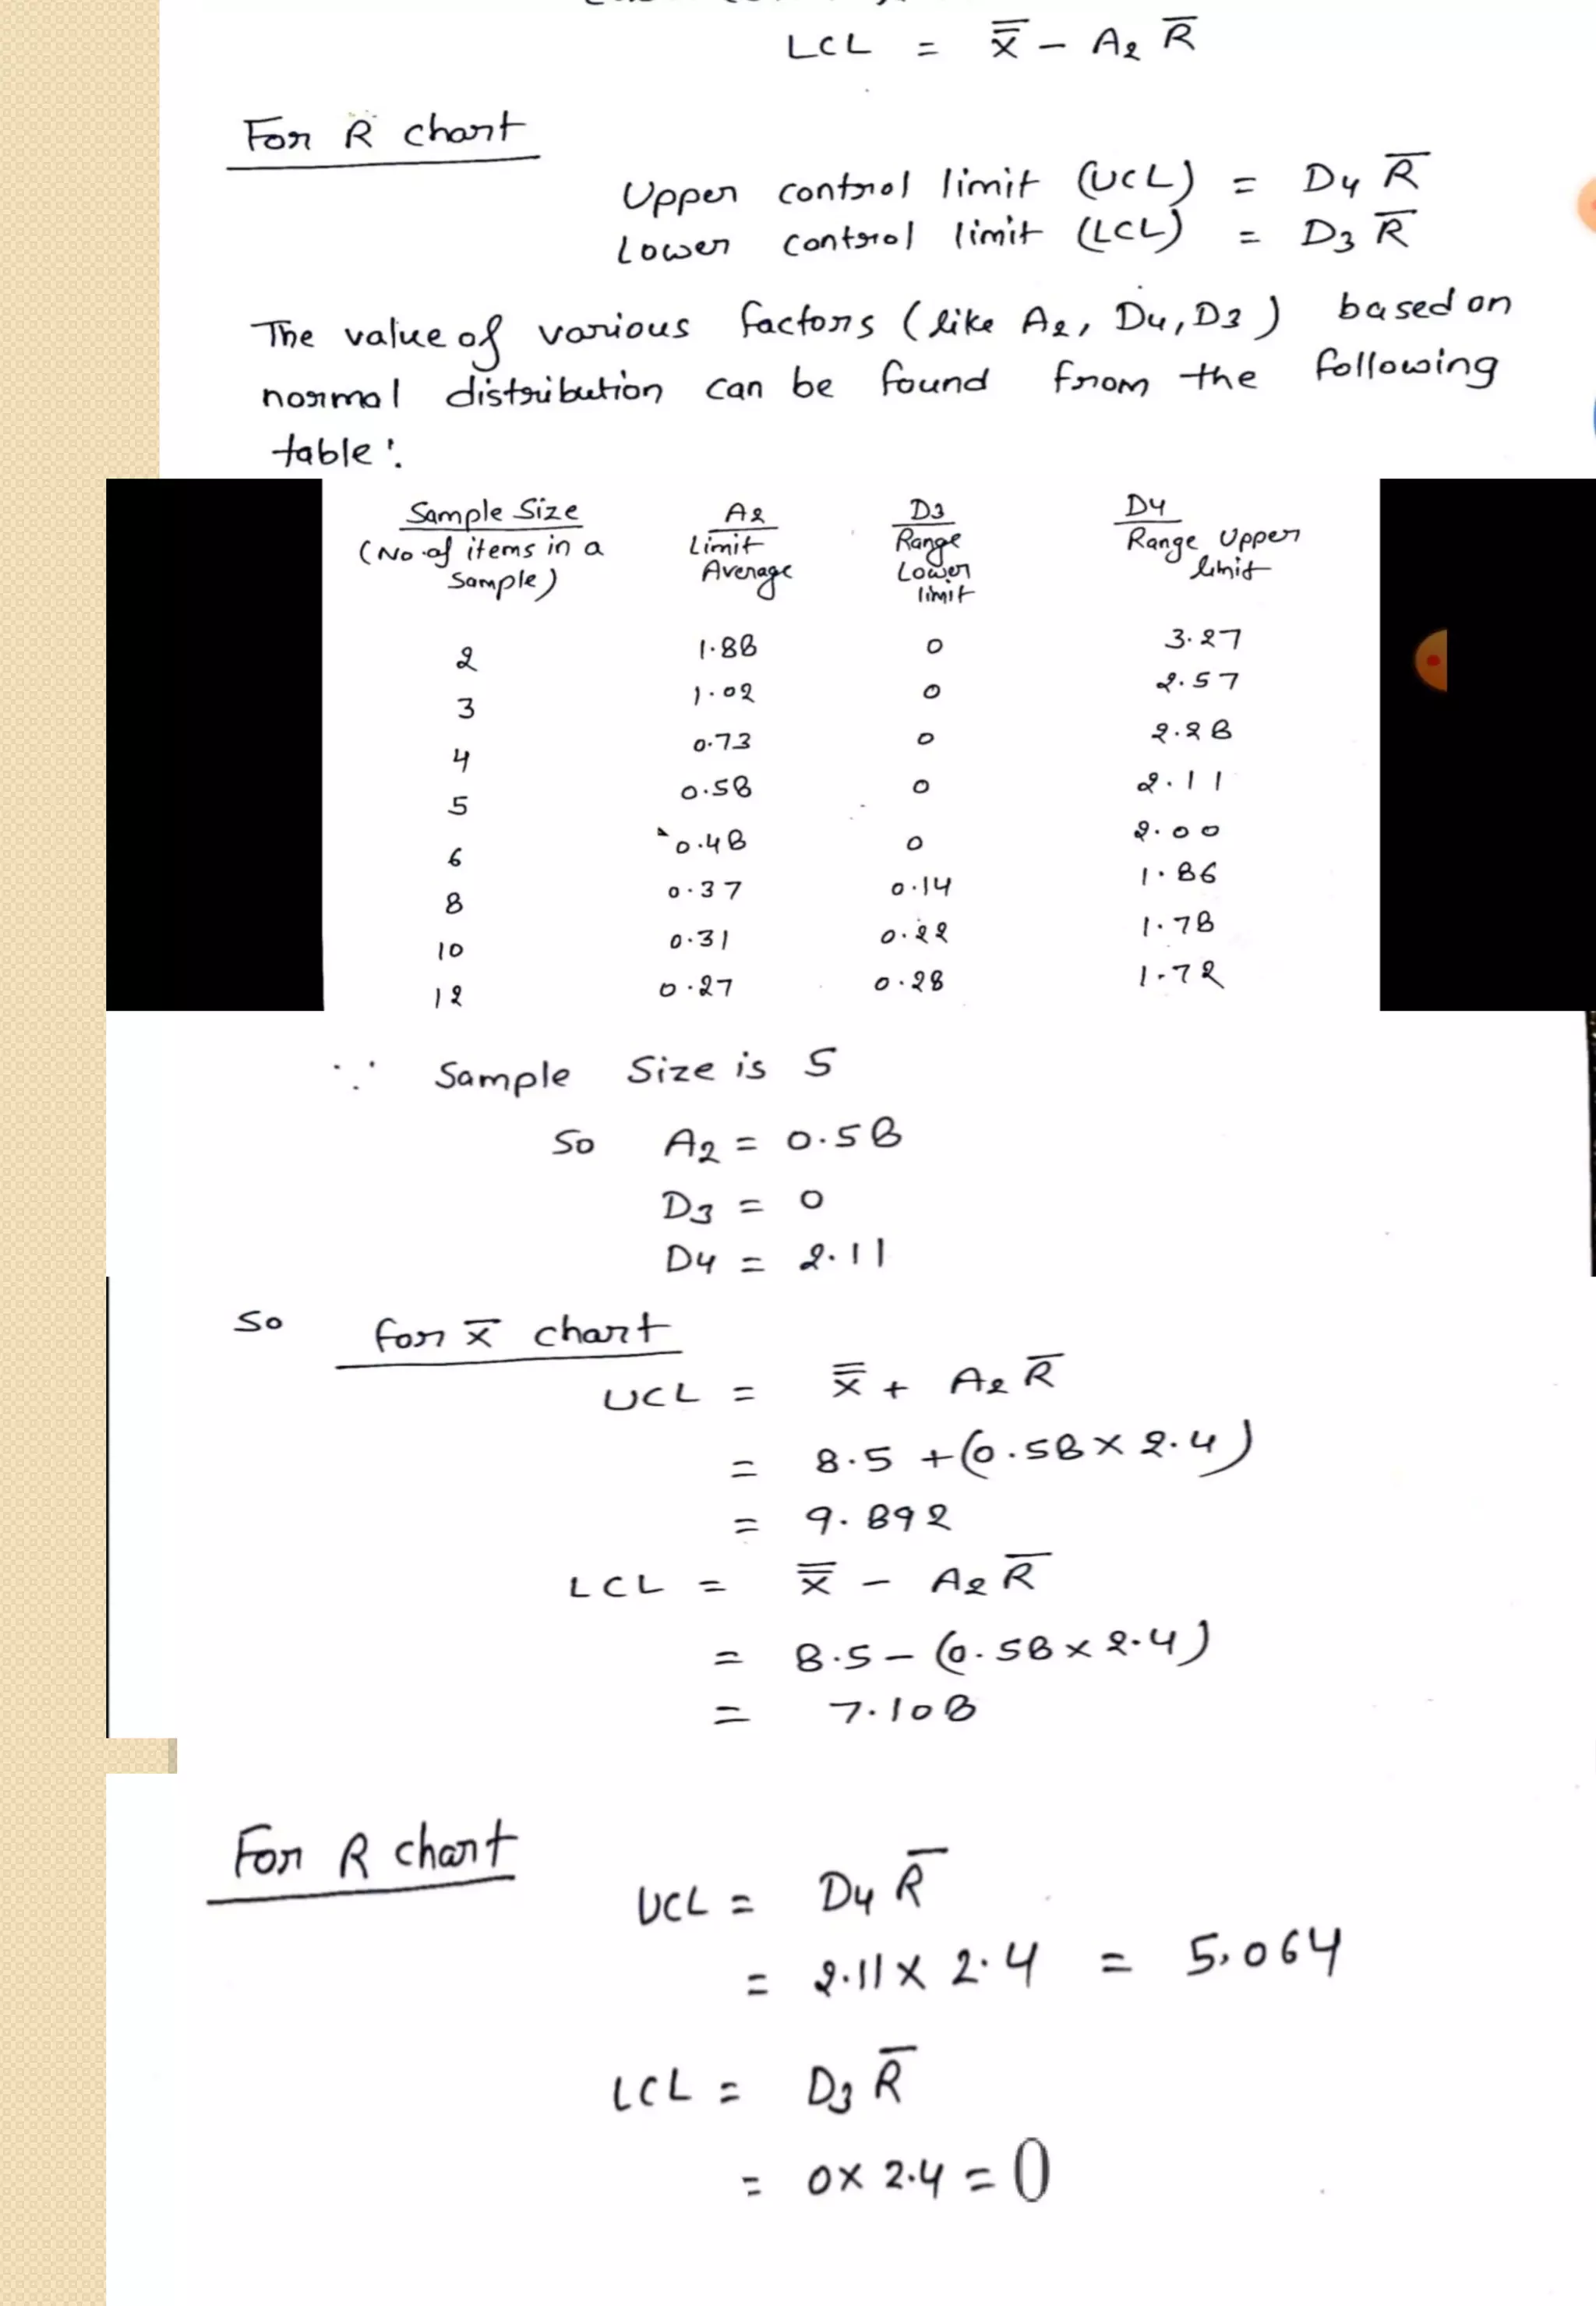 LCL = x̿ - A2 R̅
For R chart
Upper control limit (UCL) = D4 R̅
Lower control limit (LCL) = D3 R̅
The value of various factors (like A2, D4, D3) based on
normal distribution can be found from the following
table:
Sample Size A2 D3 D4
(No. of items in a Limit Range Range Upper
Sample) Average Lower limit
limit
2 1.88 0 3.27
3 1.02 0 2.57
4 0.73 0 2.28
5 0.58 0 2.11
6 0.48 0 2.00
8 0.37 0.14 1.86
10 0.31 0.22 1.78
12 0.27 0.28 1.72
∵ Sample Size is 5
So A2 = 0.58
D3 = 0
D4 = 2.11
So for x̅ chart
UCL = x̿ + A2 R̅
= 8.5 + (0.58 × 2.4)
= 9.892
LCL = x̿ - A2 R̅
= 8.5 - (0.58 × 2.4)
= 7.108
For R chart
UCL = D4 R̅
= 2.11 × 2.4 = 5.064
LCL = D3 R̅
= 0 × 2.4 = 0